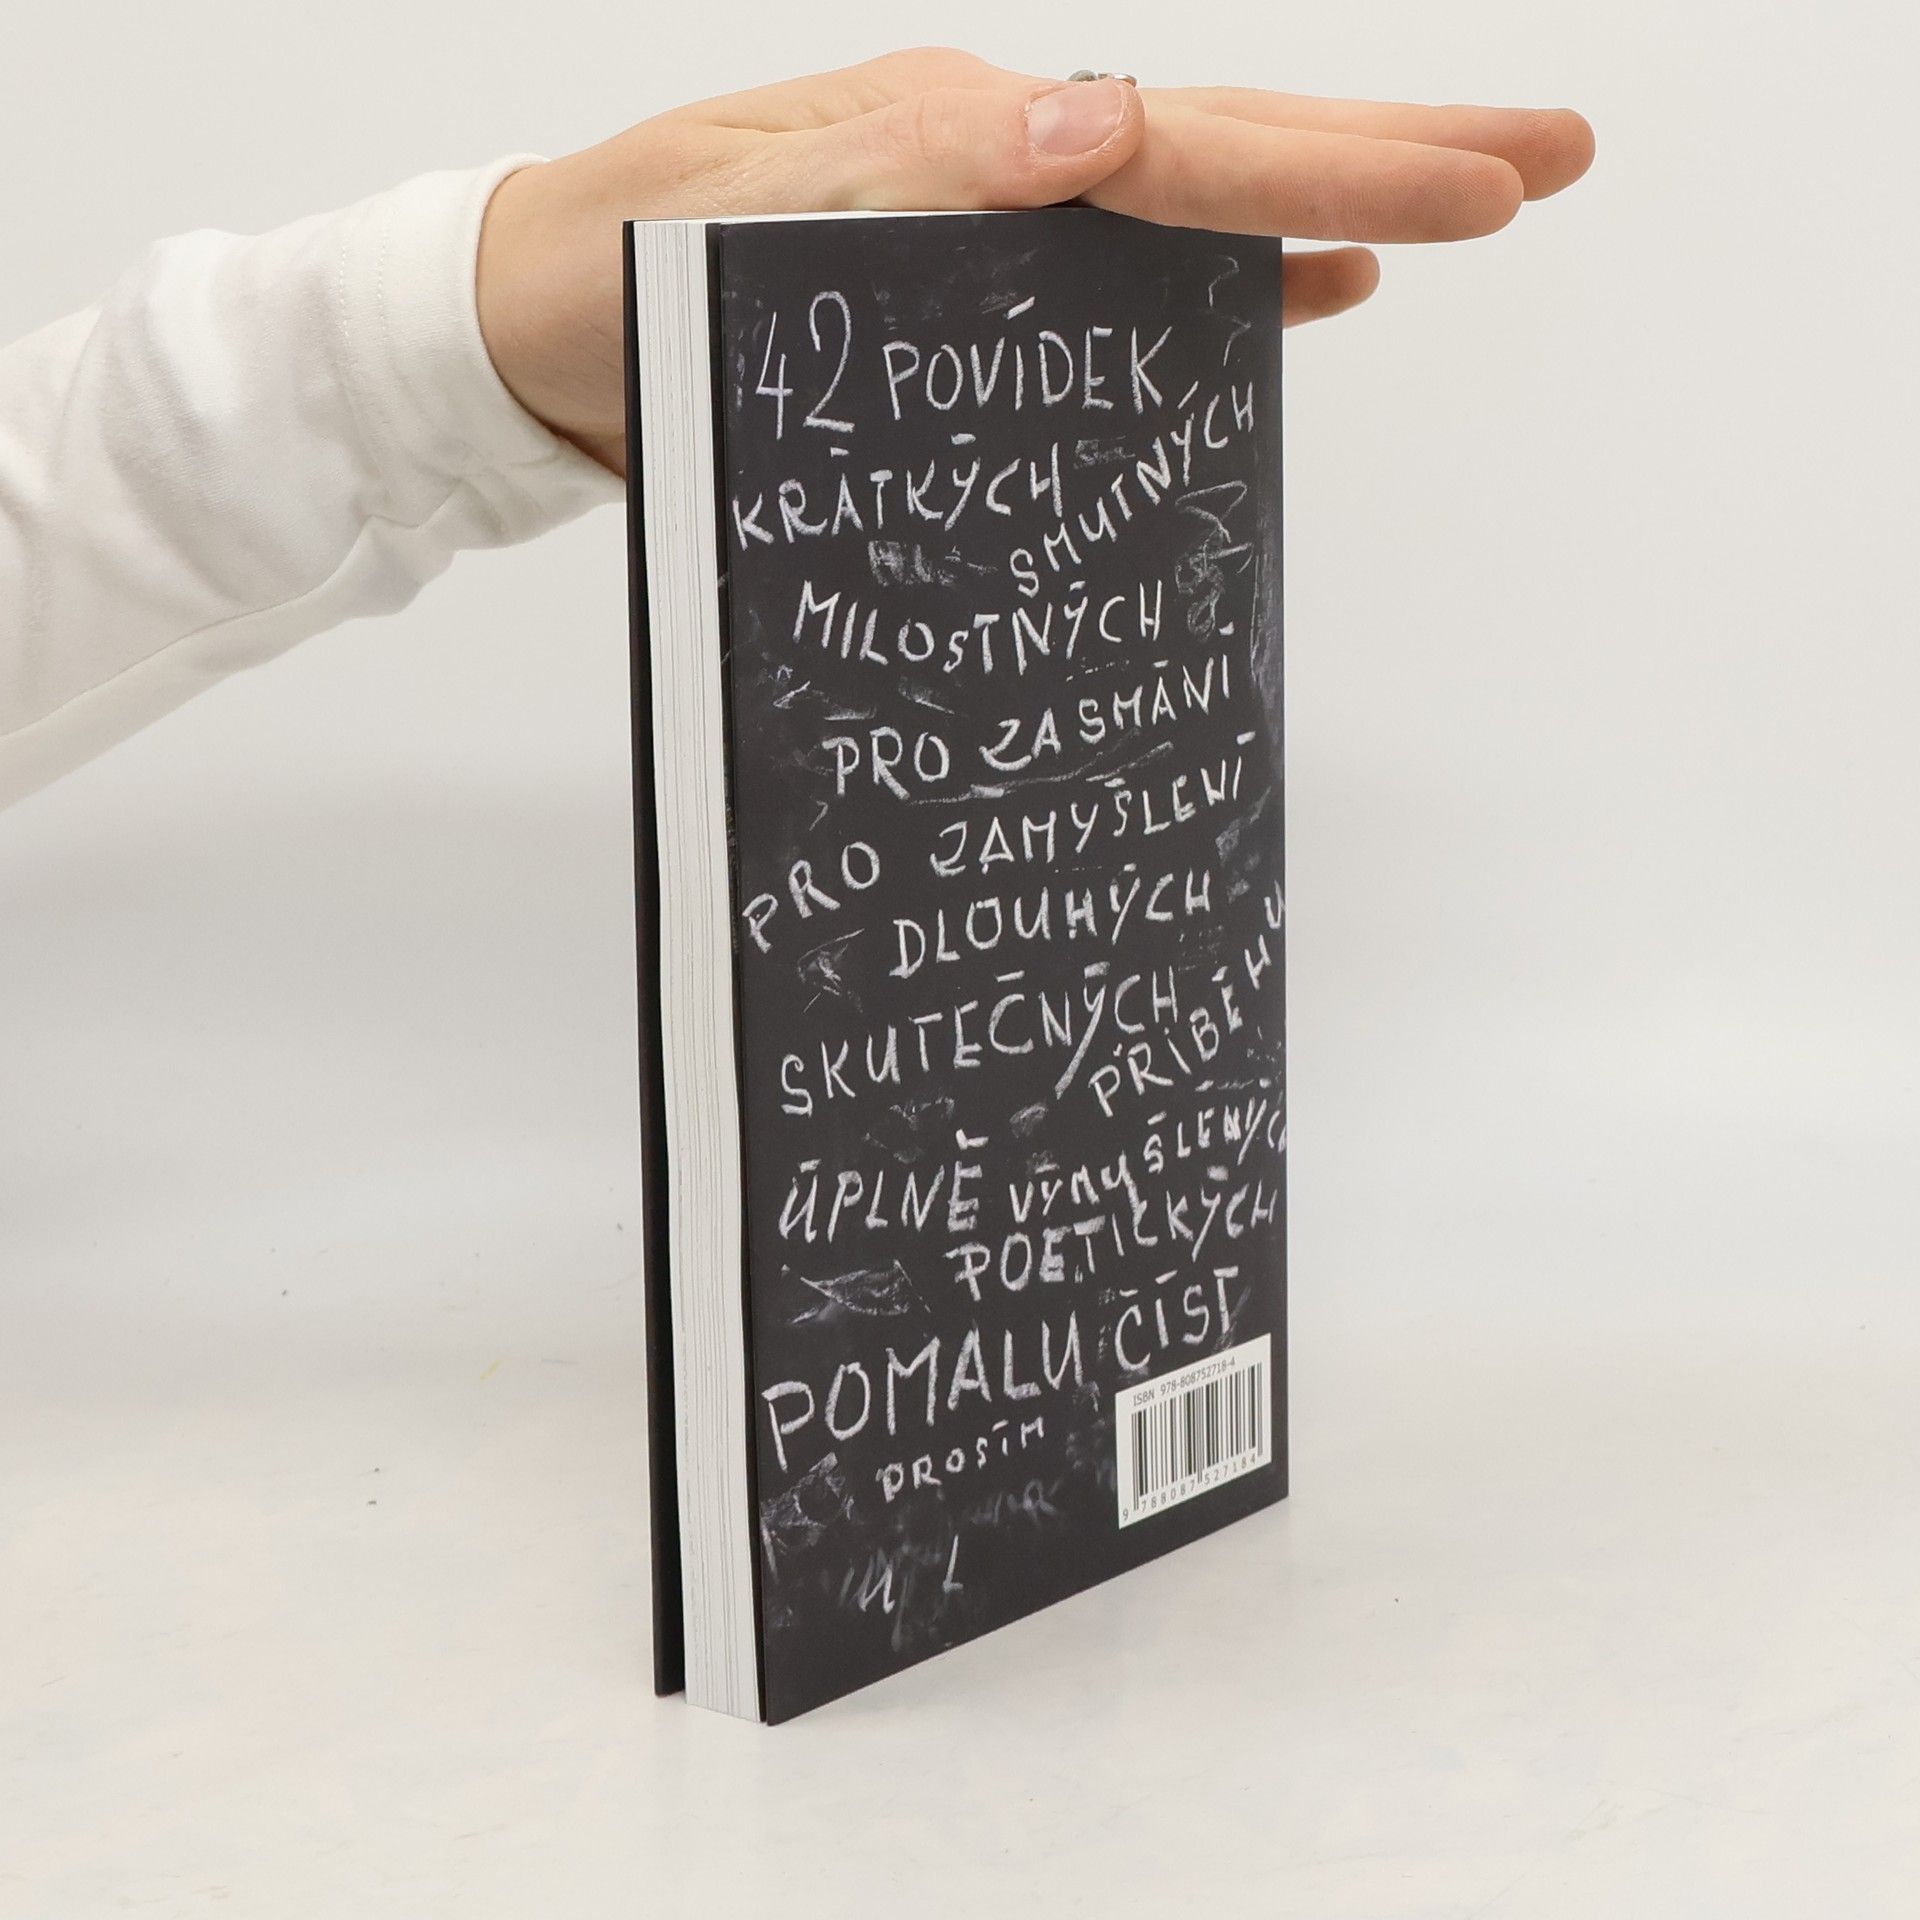 42 POVÍDEK
KRÁTKÝCH
SMUTNÝCH
MILOSTNÝCH
PRO ZASMÁNÍ
PRO ZAMYŠLENÍ
DLOUHÝCH
SKUTEČNÝCH
PŘÍBĚHU
ÚPLNĚ VYMYŠLENÝC
POETICKÝCH
POMALU ČÍST
PROSÍM
ISBN 978-808752718-4
9 788087 527184